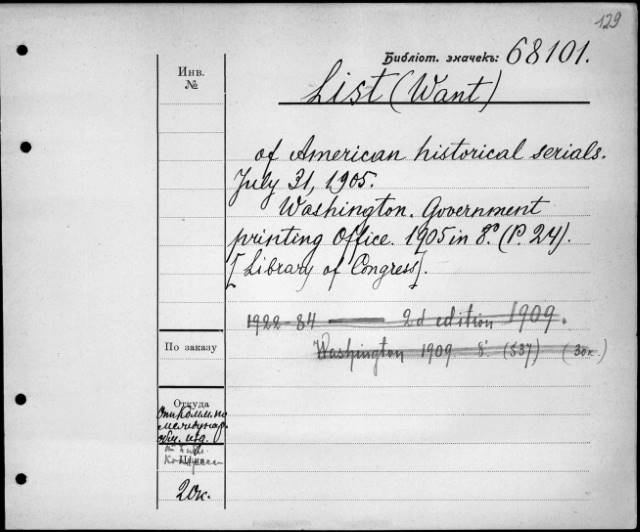 129
Библіот. значекъ: 68101.
Инв.
№
List (Want)
of American historical serials.
July 31, 1905.
Washington. Government
printing Office. 1905 in 8º. (P. 24).
[Library of Congress].
1922-84 — 2d edition 1909.
Washington 1909. 8º. (537) (30к.)
По заказу
Откуда
Отъ Комм. по
междунар.
обм. изд.
Цѣна
20к.